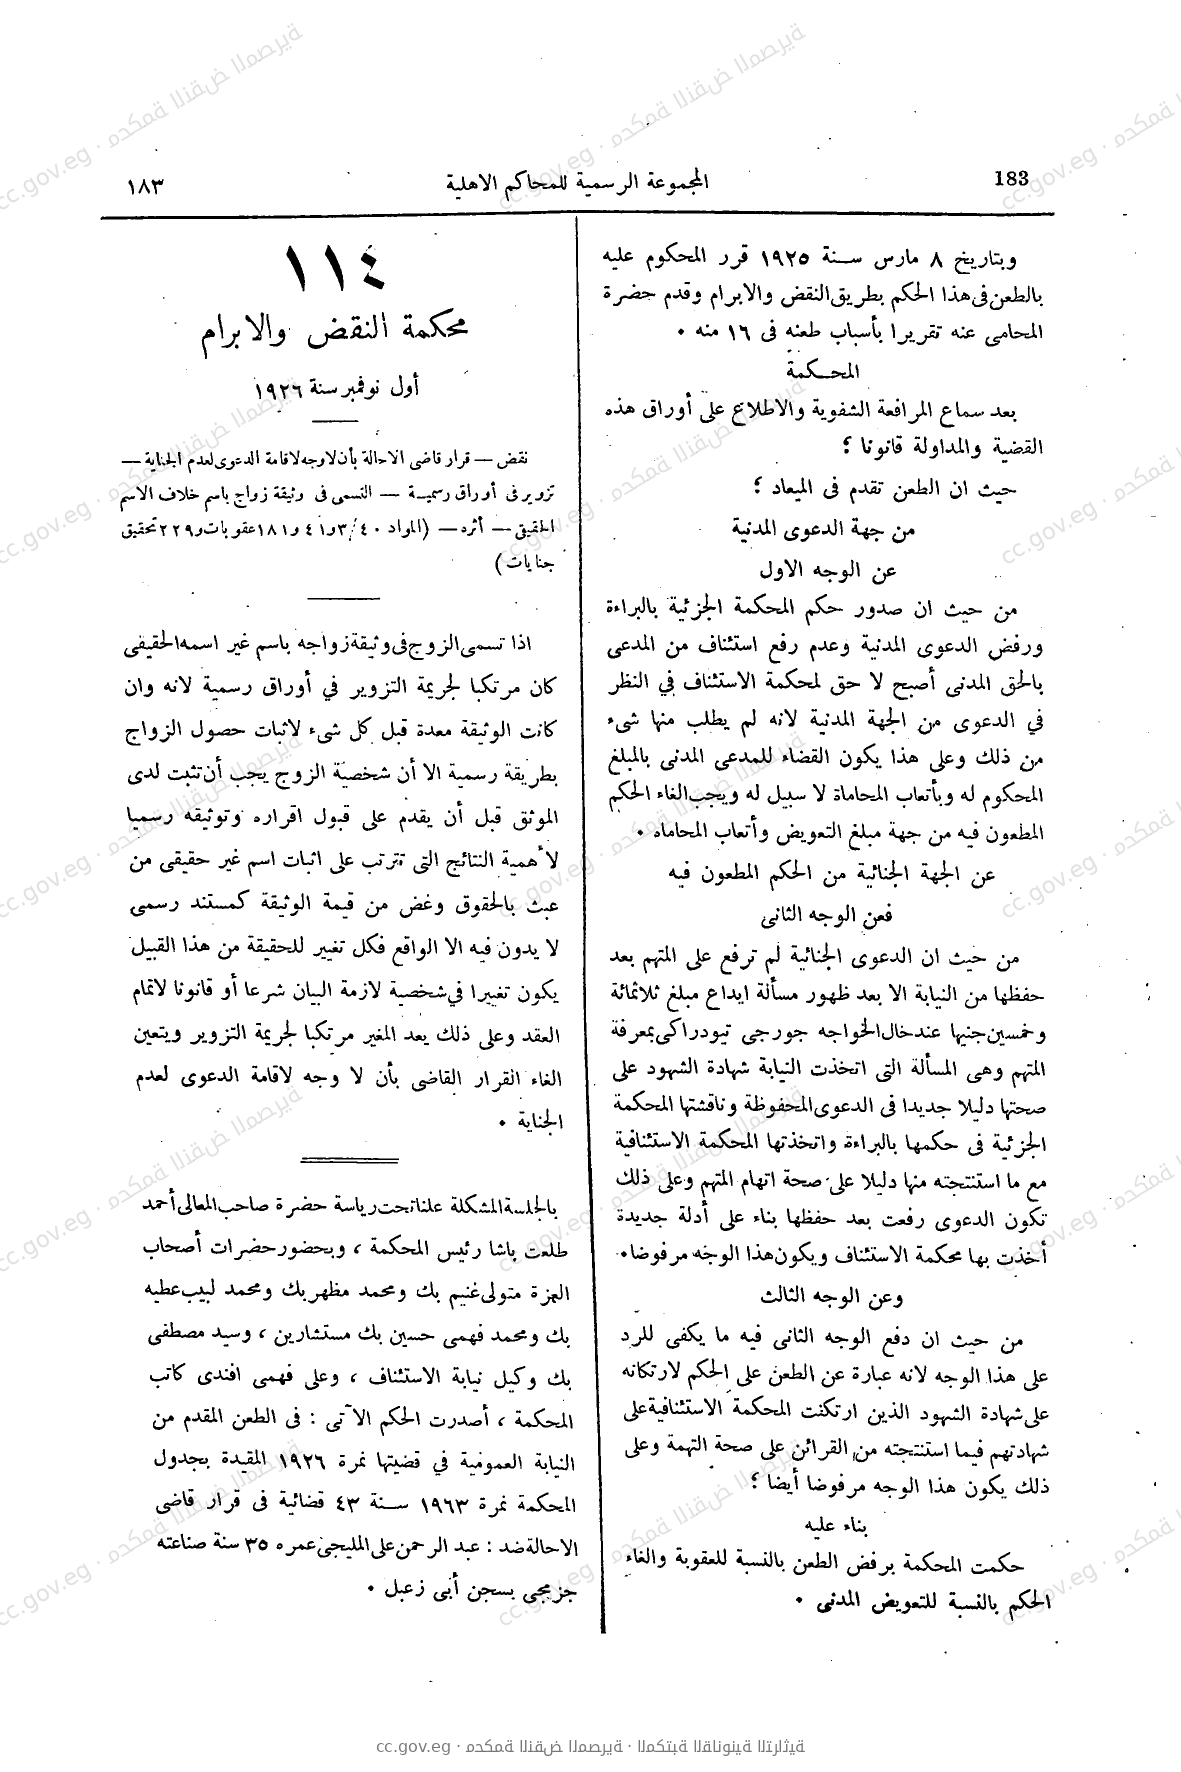 183
المجموعة الرسمية للمحاكم الاهلية
١٨٣
وبتاريخ ٨ مارس سنة ١٩٢٥ قرر المحكوم عليه
بالطعن فى هذا الحكم بطريق النقض والابرام وقدم حضرة
المحامى عنه تقريرا بأسباب طعنه فى ١٦ منه ٠
المحكمة
بعد سماع المرافعة الشفوية والاطلاع على أوراق هذه
القضية والمداولة قانونا ؛
حيث ان الطعن تقدم فى الميعاد ؛
من جهة الدعوى المدنية
عن الوجه الاول
من حيث ان صدور حكم المحكمة الجزئية بالبراءة
ورفض الدعوى المدنية وعدم رفع استئناف من المدعى
بالحق المدنى أصبح لا حق لمحكمة الاستئناف في النظر
في الدعوى من الجهة المدنية لانه لم يطلب منها شىء
من ذلك وعلى هذا يكون القضاء للمدعى المدنى بالمبلغ
المحكوم له وبأتعاب المحاماة لا سبيل له ويجب الغاء الحكم
المطعون فيه من جهة مبلغ التعويض وأتعاب المحاماه ٠
عن الجهة الجنائية من الحكم المطعون فيه
فعن الوجه الثانى
من حيث ان الدعوى الجنائية لم ترفع على المتهم بعد
حفظها من النيابة الا بعد ظهور مسألة ايداع مبلغ ثلاثمائة
وخمسين جنيها عند خال الخواجه جورجى تيودراكى بمعرفة
المتهم وهى المسألة التى اتخذت النيابة شهادة الشهود على
صحتها دليلا جديدا فى الدعوى المحفوظة وناقشتها المحكمة
الجزئية فى حكمها بالبراءة واتخذتها المحكمة الاستئنافية
مع ما استنتجته منها دليلا على صحة اتهام المتهم وعلى ذلك
تكون الدعوى رفعت بعد حفظها بناء على أدلة جديدة
أخذت بها محكمة الاستئناف ويكون هذا الوجه مرفوضا٠
وعن الوجه الثالث
من حيث ان دفع الوجه الثانى فيه ما يكفى للرد
على هذا الوجه لانه عبارة عن الطعن على الحكم لارتكانه
على شهادة الشهود الذين ارتكنت المحكمة الاستئنافية على
شهادتهم فيما استنتجته من القرائن على صحة التهمة وعلى
ذلك يكون هذا الوجه مرفوضا أيضا ؛
بناء عليه
حكمت المحكمة برفض الطعن بالنسبة للعقوبة والغاء
الحكم بالنسبة للتعويض المدنى ٠
١١٤
محكمة النقض والابرام
أول نوفمبر سنة ١٩٢٦
نقض — قرار قاضى الاحالة بأن لاوجه لاقامة الدعوى لعدم الجناية —
تزوير فى أوراق رسمية — التسمى فى وثيقة زواج باسم خلاف الاسم
الحقيقى — أثره — (المواد ٤٠/٣ و٤١ و١٨١ عقوبات و٢٢٩ تحقيق
جنايات)
اذا تسمى الزوج فى وثيقة زواجه باسم غير اسمه الحقيقى
كان مرتكبا لجريمة التزوير في أوراق رسمية لانه وان
كانت الوثيقة معدة قبل كل شىء لاثبات حصول الزواج
بطريقة رسمية الا أن شخصية الزوج يجب أن تثبت لدى
الموثق قبل أن يقدم على قبول اقراره وتوثيقه رسميا
لأهمية النتائج التى تترتب على اثبات اسم غير حقيقى من
عبث بالحقوق وغض من قيمة الوثيقة كمستند رسمى
لا يدون فيه الا الواقع فكل تغيير للحقيقة من هذا القبيل
يكون تغييرا في شخصية لازمة البيان شرعا أو قانونا لاتمام
العقد وعلى ذلك يعد المغير مرتكبا لجريمة التزوير ويتعين
الغاء القرار القاضى بأن لا وجه لاقامة الدعوى لعدم
الجناية ٠
بالجلسة المشكلة علنا تحت رياسة حضرة صاحب المعالى أحمد
طلعت باشا رئيس المحكمة ، وبحضور حضرات أصحاب
العزة متولى غنيم بك ومحمد مظهر بك ومحمد لبيب عطيه
بك ومحمد فهمى حسين بك مستشارين ، وسيد مصطفى
بك وكيل نيابة الاستئناف ، وعلى فهمى افندى كاتب
المحكمة ، أصدرت الحكم الآتى : فى الطعن المقدم من
النيابة العمومية في قضيتها نمرة ١٩٢٦ المقيدة بجدول
المحكمة نمرة ١٩٦٣ سنة ٤٣ قضائية فى قرار قاضى
الاحالة ضد : عبد الرحمن على المليجى عمره ٣٥ سنة صناعته
جزمجى بسجن أبى زعبل ٠
cc.gov.eg · محكمة النقض المصرية · المكتبة القانونية التراثية